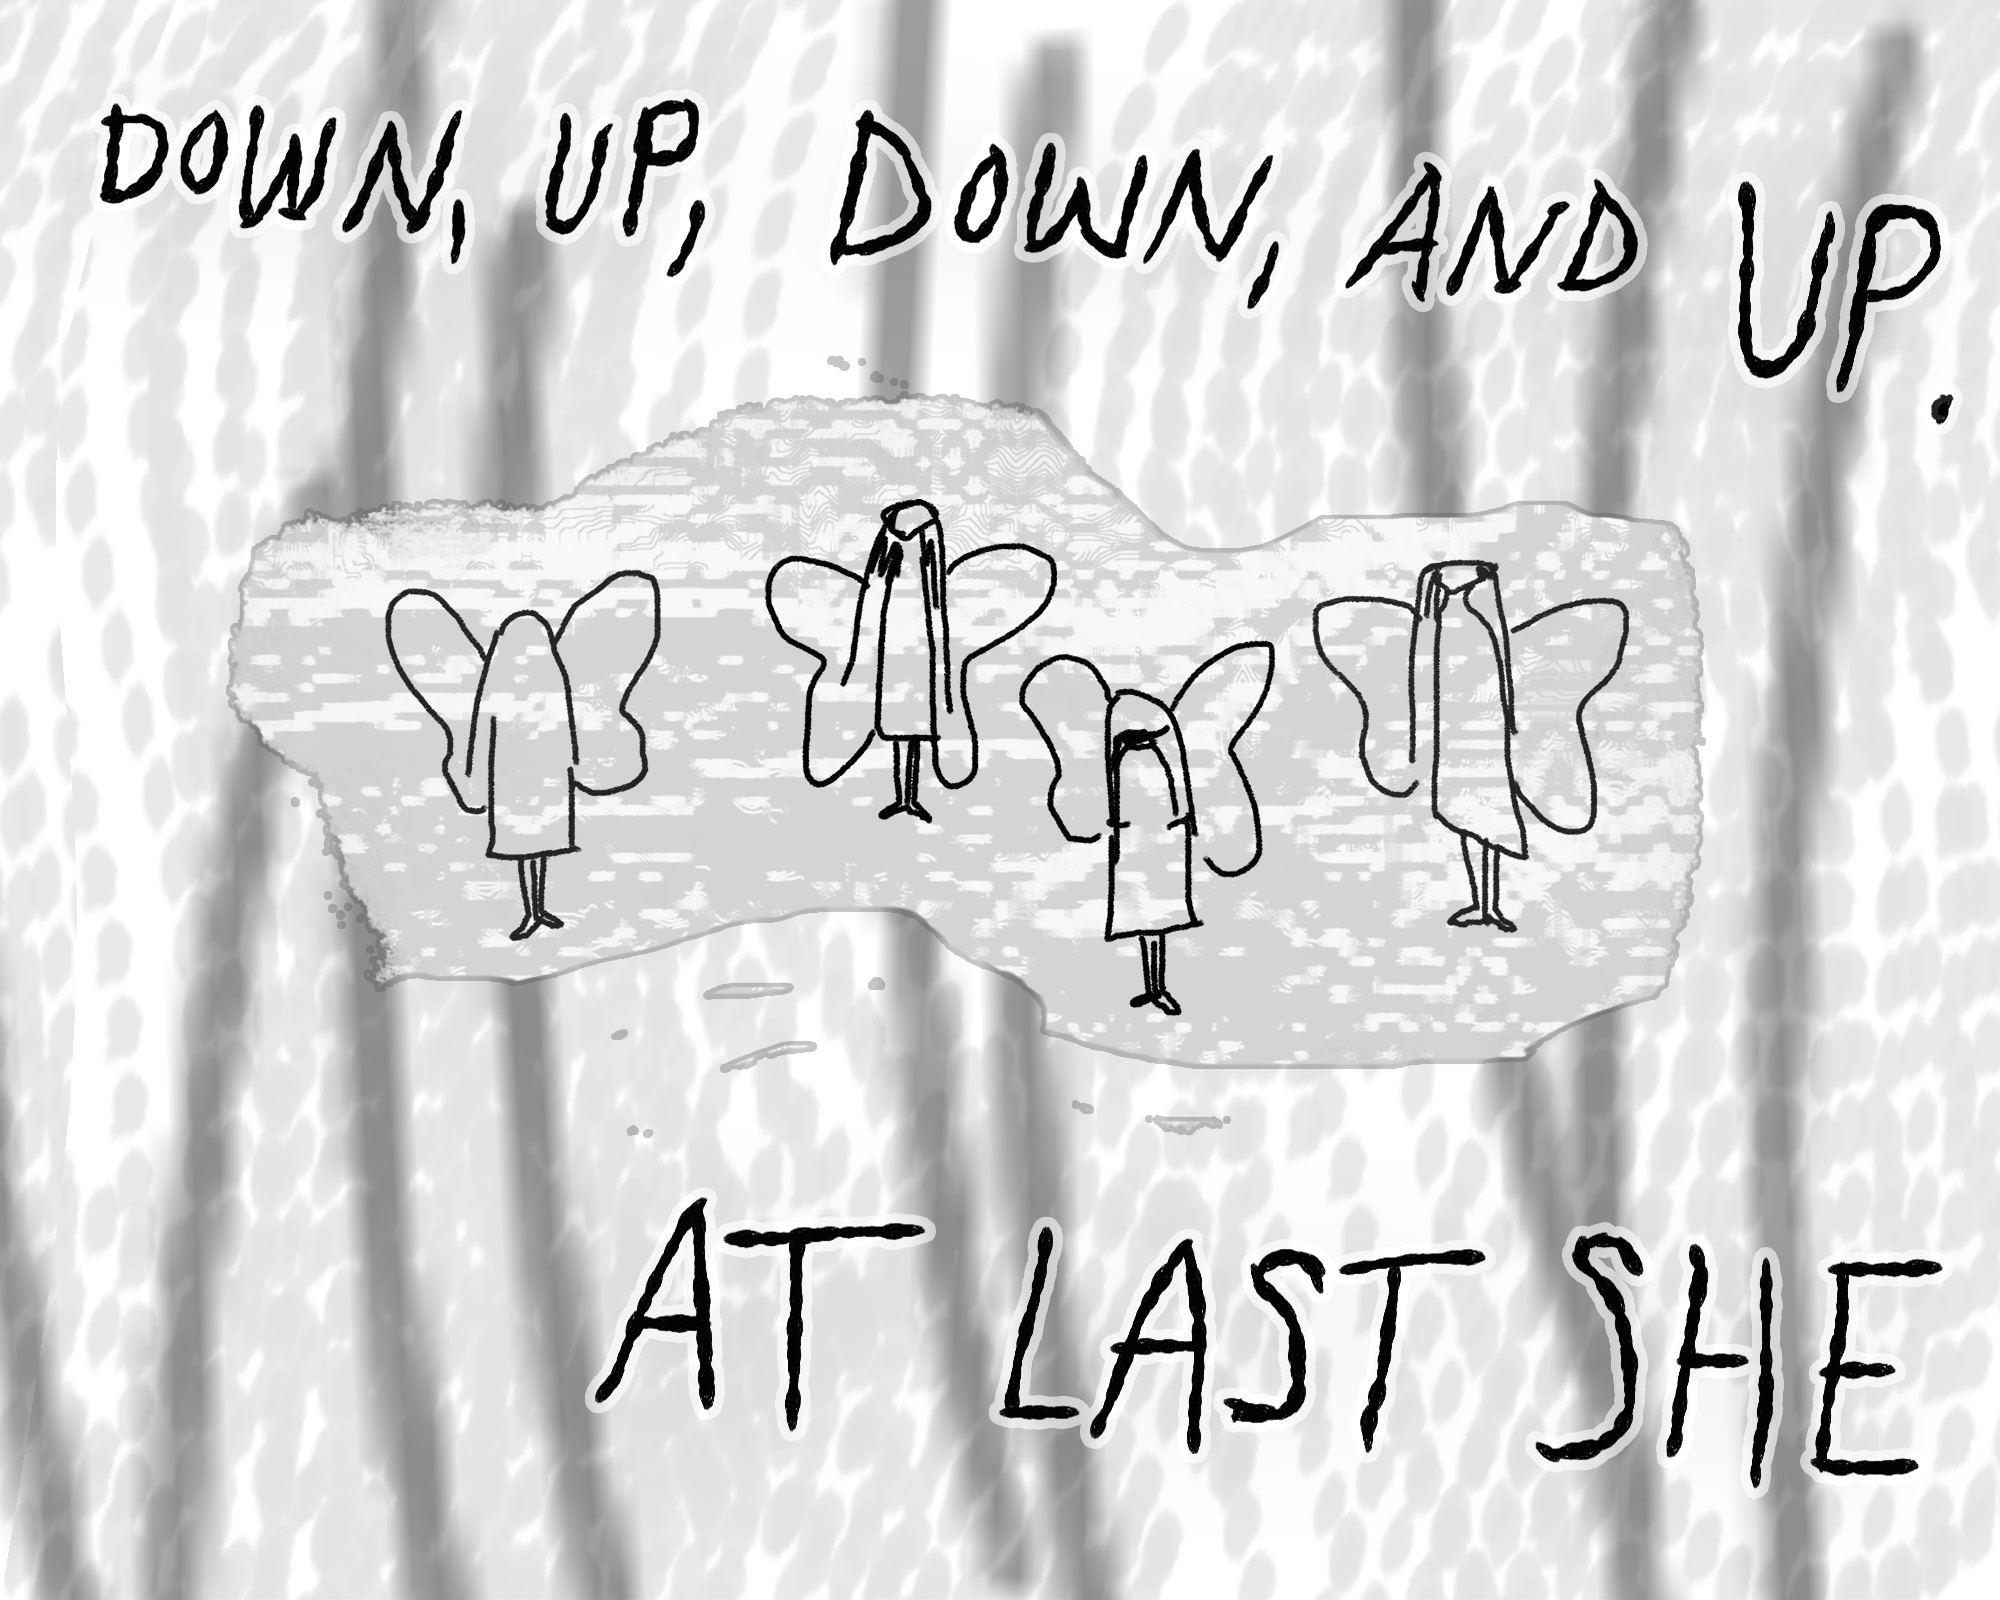 DOWN, UP, DOWN, AND UP.
AT LAST SHE